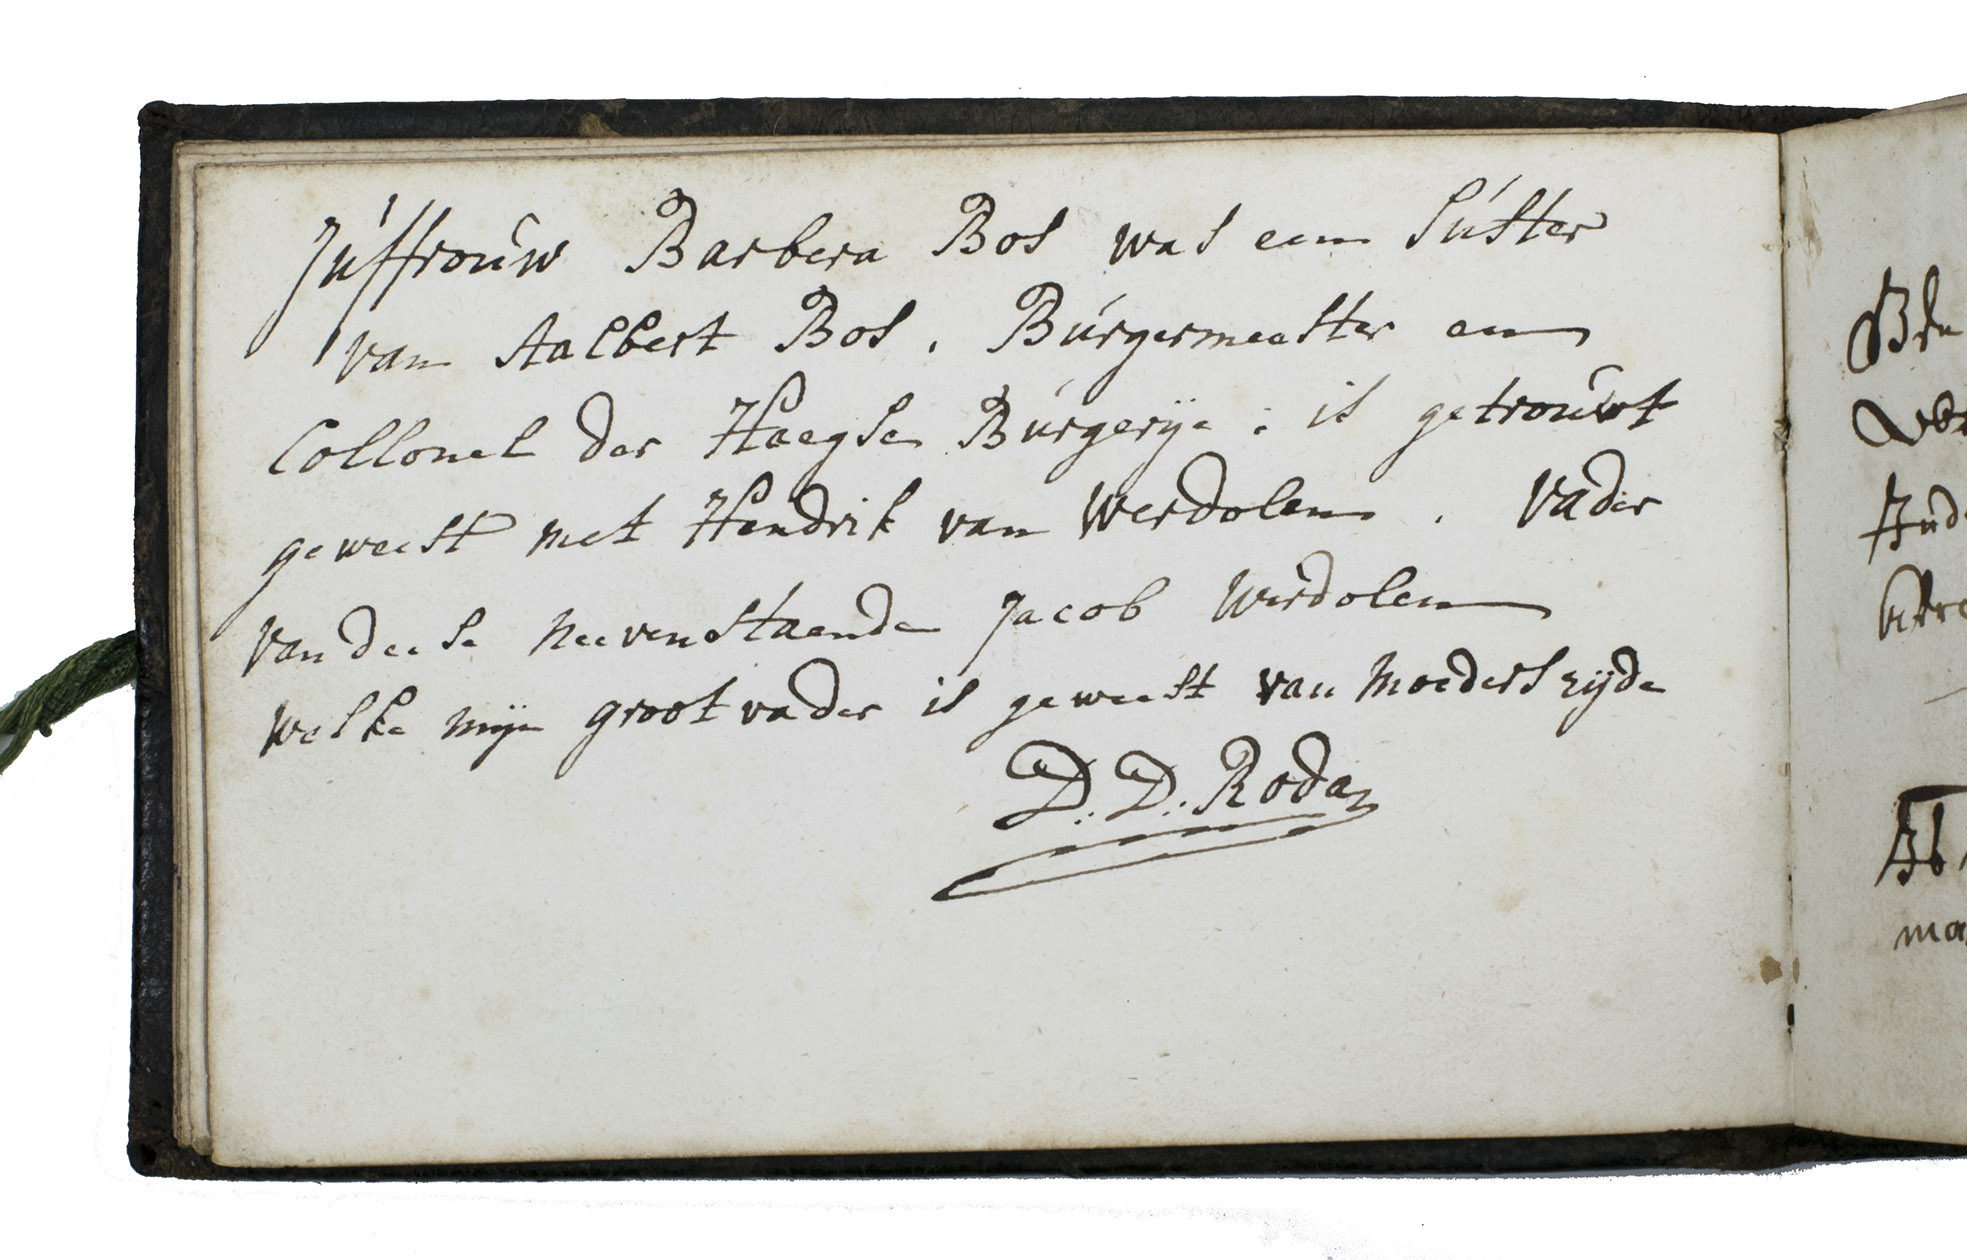 Juffrouw Barbera Bos was een Suster
van Aalbert Bos, Burgermeester en
Collonel der Haegse Burgerije; is getrouwt
geweest met Hendrik van Werdolen. Vader
van deese neevenstaende Jacob Werdolen
welke mijn grootvader is geweest van moederszijde
D: D: Roda